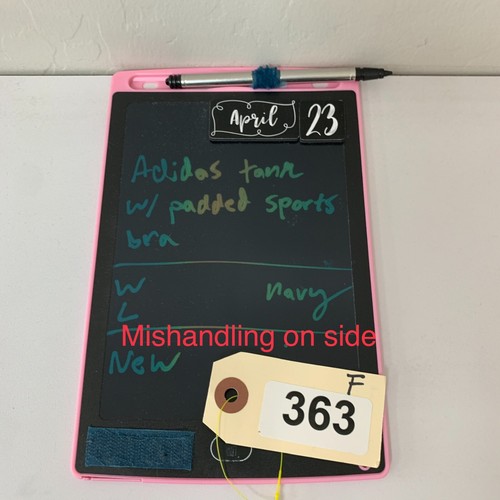 April 23
Adidas tank
w/ padded sports
bra
W navy
L
Mishandling on side
New
F
363